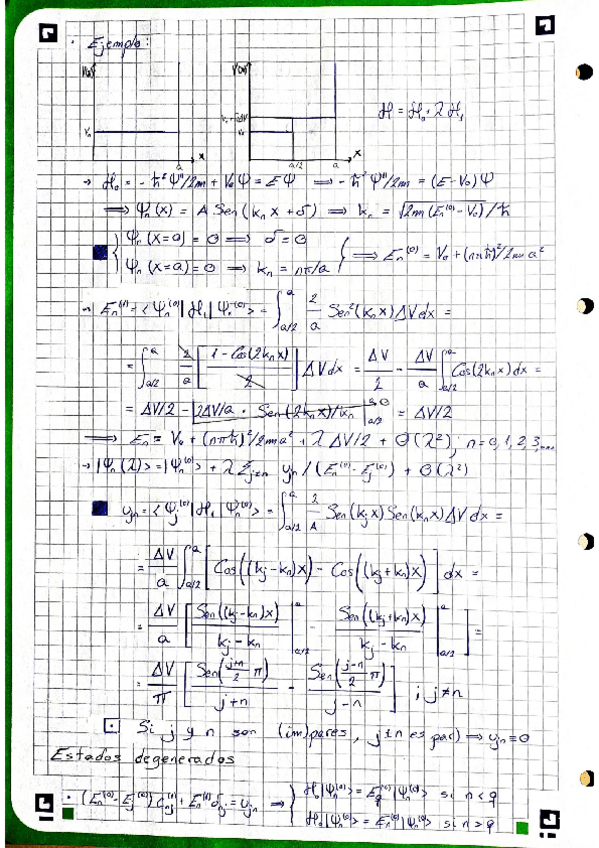 · Ejemplo:
V(x)
V(x)
V₀
V₀+ΔV
V₀
a
x
a/2
a
x
H = H₀ + λ H₁
→ H₀ = -ħ²Ψ''/2m + V₀Ψ = EΨ ⟹ -ħ²Ψ''/2m = (E-V₀)Ψ
⟹ Ψₙ(x) = A Sen(kₙx + δ) ⟹ kₙ = √(2m(Eₙ⁽⁰⁾-V₀))/ħ
Ψₙ(x=0) = 0 ⟹ δ = 0
Ψₙ(x=a) = 0 ⟹ kₙ = nπ/a
⟹ Eₙ⁽⁰⁾ = V₀ + (nπħ)²/2ma²
→ Eₙ⁽¹⁾ = <Ψₙ⁽⁰⁾|H₁|Ψₙ⁽⁰⁾> = ∫_{a/2}^{a} 2/a Sen²(kₙx)ΔV dx =
= ∫_{a/2}^{a} 2/a [(1-Cos(2kₙx))/2] ΔV dx = ΔV/2 - ΔV/a ∫_{a/2}^{a} Cos(2kₙx)dx =
= ΔV/2 - [2ΔV/a · Sen(2kₙx)/kₙ]_{a/2}^{a} = ΔV/2
⟹ Eₙ = V₀ + (nπħ)²/2ma² + λΔV/2 + Θ(λ²); n=0,1,2,3,...
→ |Ψₙ(λ)> = |Ψₙ⁽⁰⁾> + λ Σ_{j≠n} υ_{jn} / (Eₙ⁽⁰⁾-E_j⁽⁰⁾) + Θ(λ²)
υ_{jn} = <Ψ_j⁽⁰⁾|H₁|Ψₙ⁽⁰⁾> = ∫_{a/2}^{a} 2/A Sen(k_jx)Sen(kₙx)ΔV dx =
= ΔV/a ∫_{a/2}^{a} [Cos((k_j-kₙ)x) - Cos((k_j+kₙ)x)] dx =
= ΔV/a [Sen((k_j-kₙ)x)/(k_j-kₙ) |_{a/2}^{a} - Sen((k_j+kₙ)x)/(k_j-kₙ) |_{a/2}^{a}] =
= ΔV/π [Sen((j+n)/2 π)/(j+n) - Sen((j-n)/2 π)/(j-n)] ; j≠n
Si j y n son (im)pares, j±n es par) ⟹ υ_{jn} = 0
Estados degenerados
· (Eₙ⁽⁰⁾-E_j⁽⁰⁾)c_{nj}⁽¹⁾ + Eₙ⁽¹⁾δ_{nj} = υ_{jn} ⟹
H₀|Ψₙ⁽⁰⁾> = E_q⁽⁰⁾|Ψₙ⁽⁰⁾> si n<q
H₀|Ψₙ⁽⁰⁾> = Eₙ⁽⁰⁾|Ψₙ⁽⁰⁾> si n>q